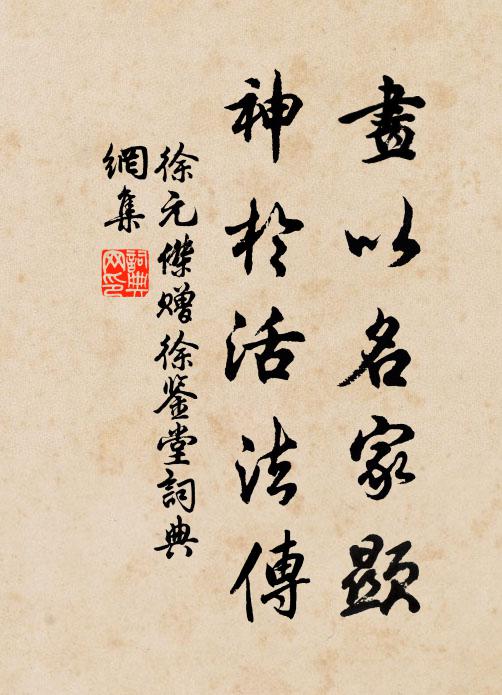 畫以名家顯
神於活法傳
徐元傑贈徐鉴堂詞典
網集
詞典网印